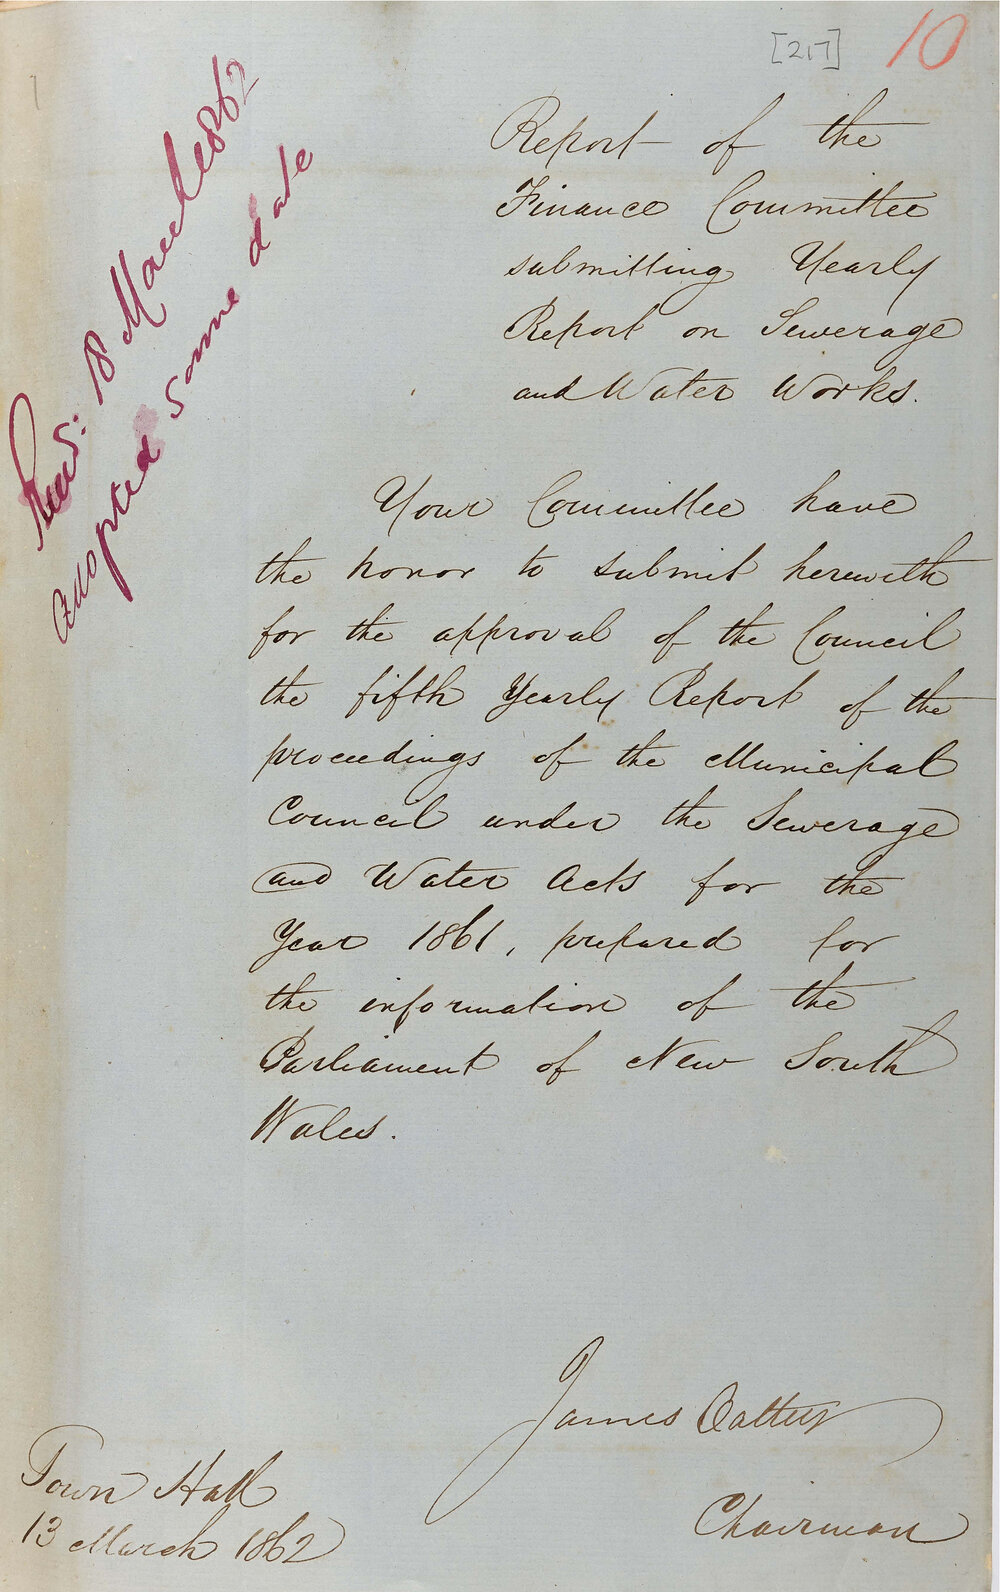 [217] 10
Recd. 18 March 1862
adopted same date
Report of the
Finance Committee
submitting Yearly
Report on Sewerage
and Water Works.
Your Committee have
the honor to submit herewith
for the approval of the Council
the fifth Yearly Report of the
proceedings of the Municipal
Council under the Sewerage
and Water Acts for the
Year 1861, prepared for
the information of the
Parliament of New South
Wales.
James Oatley
Chairman
Town Hall
13 March 1862